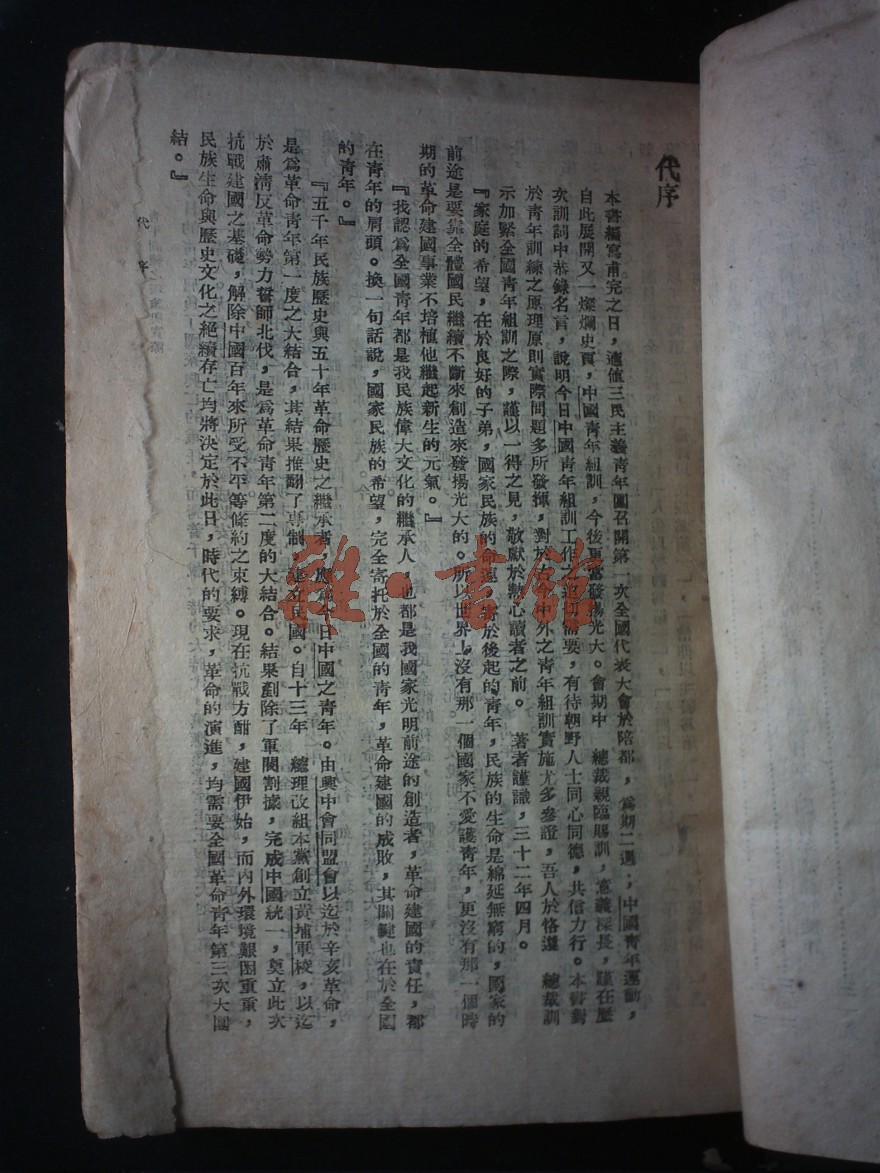 代序
本書編寫甫完之日，適值三民主義青年團召開第一次全國代表大會於陪都，爲期二週；中國青年運動，
自此展開又一燦爛史頁，中國青年組訓，今後更當發揚光大。會期中　總裁親臨賜訓，意義深長，謹在歷
次訓詞中恭錄名言，說明今日中國青年組訓工作之迫切需要，有待朝野人士同心同德，共信力行。本書對
於青年訓練之原理原則實際問題多所發揮，對於古今中外之青年組訓實施尤多參證，吾人於恪遵　總裁訓
示加緊全國青年組訓之際，謹以一得之見，敬獻於熱心讀者之前。　著者謹識，三十二年四月。
『家庭的希望，在於良好的子弟，國家民族的命運，寄於後起的青年，民族的生命是綿延無窮的，國家的
前途是要靠全體國民繼續不斷來創造來發揚光大的。所以世界上沒有那一個國家不愛護青年，更沒有那一個時
期的革命建國事業不培植他繼起新生的元氣。』
『我認爲全國青年都是我民族偉大文化的繼承人，也都是我國家光明前途的創造者，革命建國的責任，都
在青年的肩頭。換一句話說，國家民族的希望，完全寄托於全國的青年，革命建國的成敗，其關鍵也在於全國
的青年。』
『五千年民族歷史與五十年革命歷史之繼承者，應爲今日中國之青年。由興中會同盟會以迄於辛亥革命，
是爲革命青年第一度之大結合，其結果推翻了專制，建立民國。自十三年　總理改組本黨創立黃埔軍校，以迄
於肅清反革命勢力誓師北伐，是爲革命青年第二度的大結合。結果剷除了軍閥割據，完成中國統一，奠立此次
抗戰建國之基礎，解除中國百年來所受不平等條約之束縛。現在抗戰方酣，建國伊始，而內外環境艱困重重，
民族生命與歷史文化之絕續存亡均將決定於此日，時代的要求，革命的演進，均需要全國革命青年第三次大團
結。』
代序
雜·書館